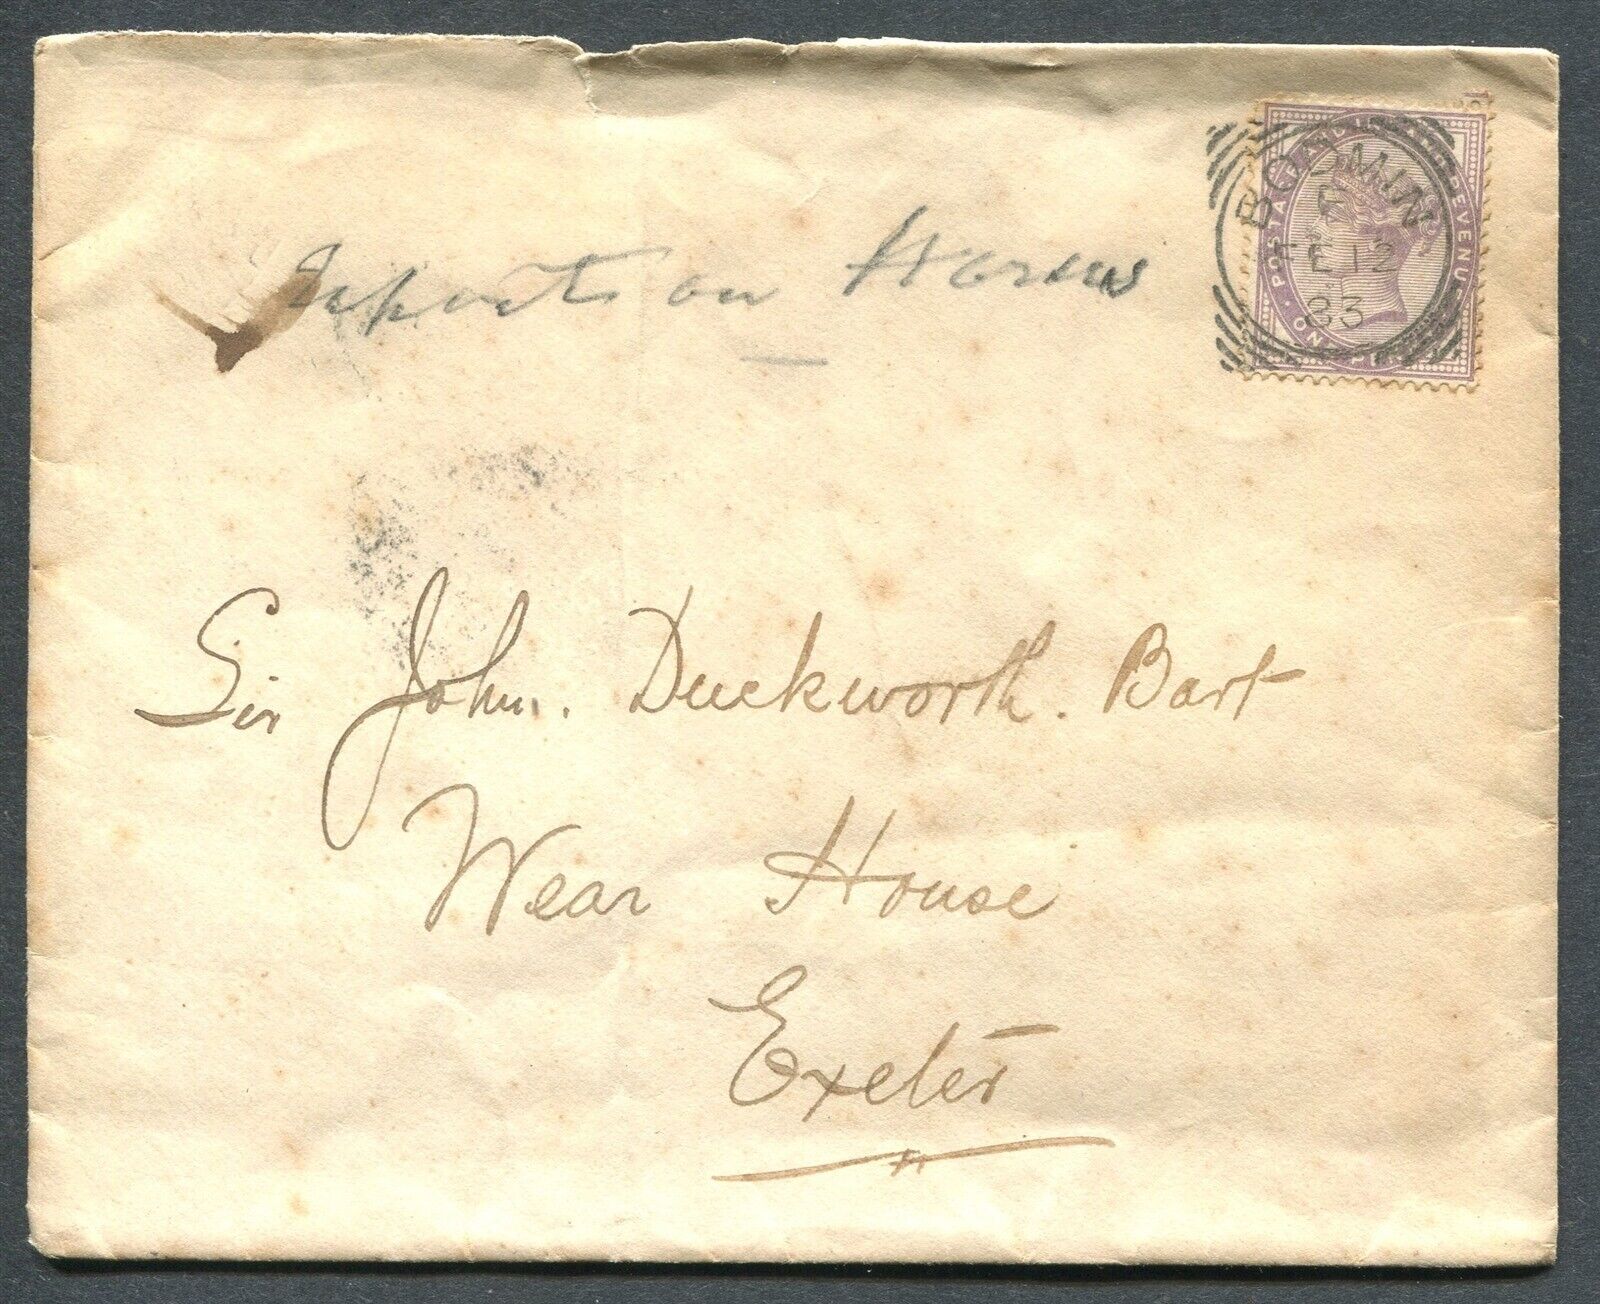 BODMIN
FE 12
83
POSTAGE AND REVENUE
ON
on
Sir John. Duckworth. Bart
Wear House
Exeter